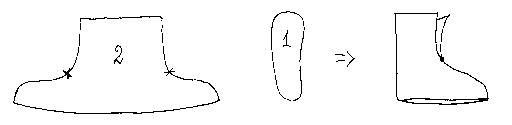 2 1 =>